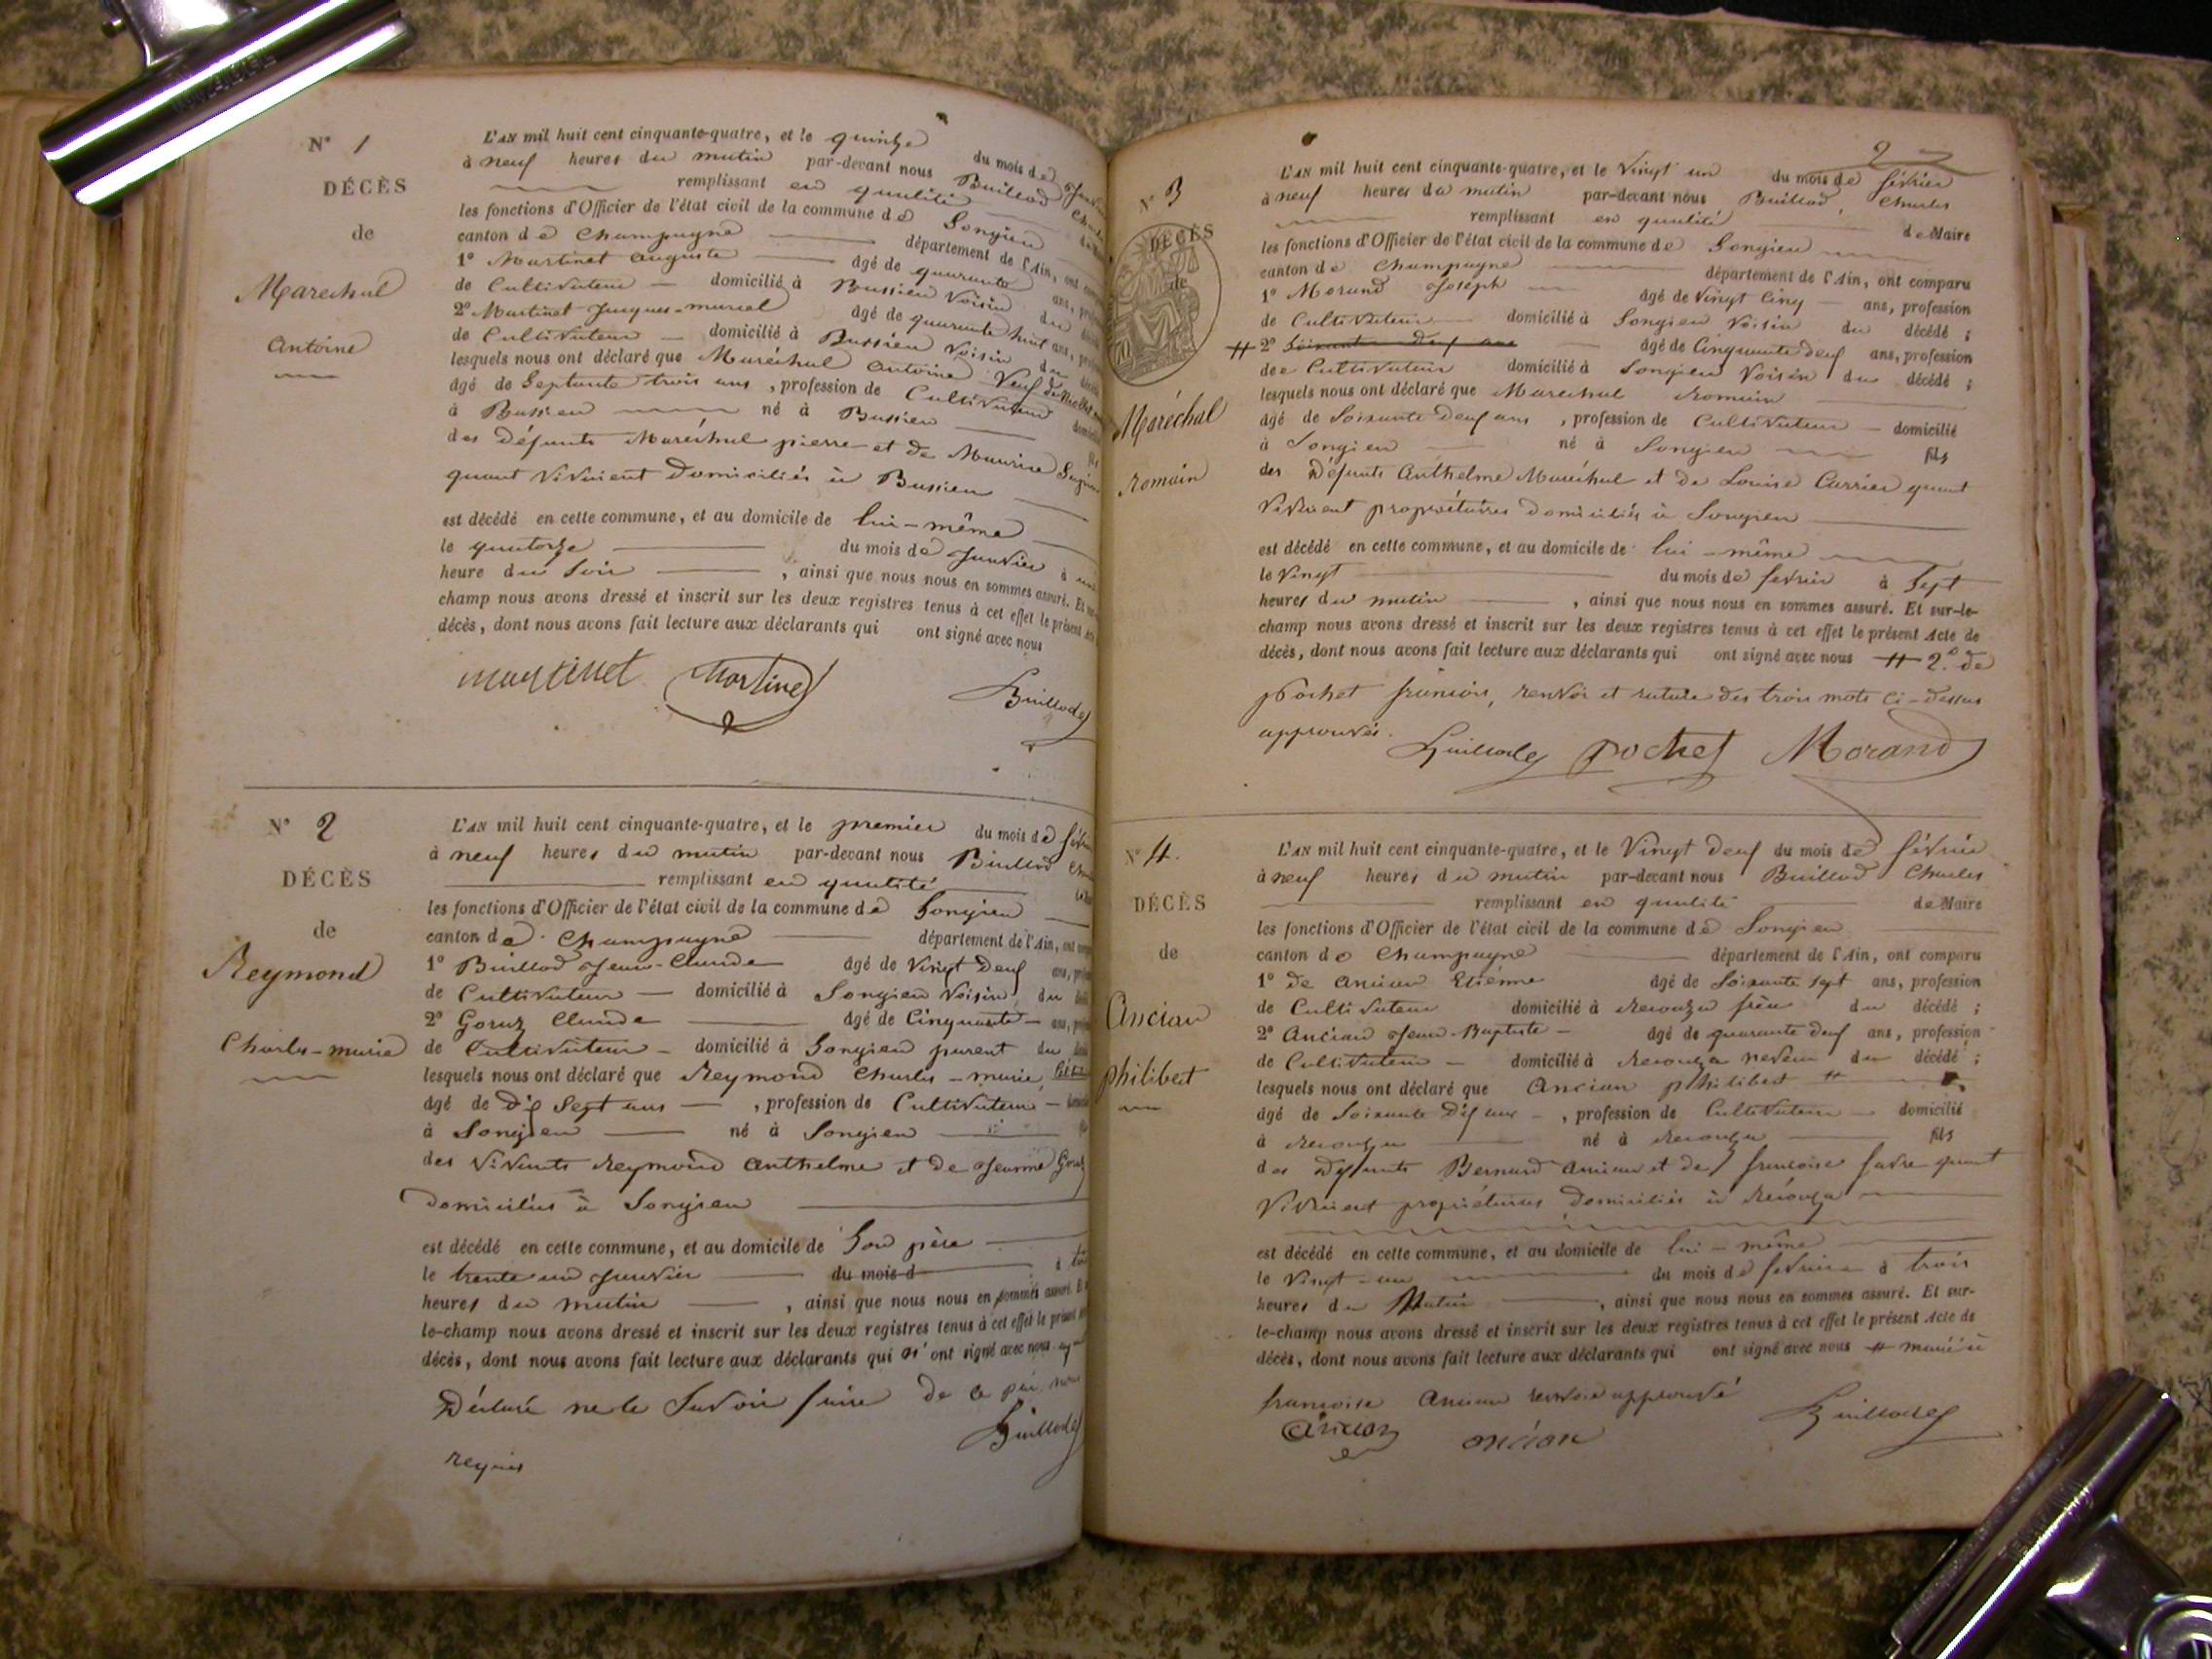 N° 1
DÉCÈS
de
Marechal
Antoine
L'AN mil huit cent cinquante-quatre, et le quinze du mois de
à neuf heures du matin par-devant nous Buillod
remplissant en qualité
les fonctions d'Officier de l'état civil de la commune de Songieu
canton de Champagne département de l'Ain, ont
1° Martinet Auguste âgé de quarante ans,
de Cultivateur domicilié à Bussieu Voisin du
2° Martinet Jacques-marcel âgé de quarante huit ans,
de Cultivateur domicilié à Bussieu Voisin du
lesquels nous ont déclaré que Maréchal Antoine Veuf de
âgé de Septante trois ans, profession de Cultivateur
à Bussieu né à Bussieu
des Défunts Maréchal pierre et de Maurice
quant Vivaient Domiciliés à Bussieu
est décédé en cette commune, et au domicile de lui-même
le quatorze du mois de Janvier à une
heure du Soir, ainsi que nous nous en sommes assuré. Et
champ nous avons dressé et inscrit sur les deux registres tenus à cet effet le présent
décès, dont nous avons fait lecture aux déclarants qui ont signé avec nous
martinet Martinet Buillod
N° 2
DÉCÈS
de
Reymond
Charles-marie
L'AN mil huit cent cinquante-quatre, et le premier du mois de
à neuf heures du matin par-devant nous Buillod
remplissant en qualité
les fonctions d'Officier de l'état civil de la commune de Songieu
canton de Champagne département de l'Ain, ont
1° Buillod Jean-Claude âgé de Vingt Deux ans,
de Cultivateur domicilié à Songieu Voisin du
2° Goruz Claude âgé de Cinquante ans,
de Cultivateur domicilié à Songieu parent du
lesquels nous ont déclaré que Reymond Charles-marie
âgé de Dix Sept ans, profession de Cultivateur
à Songieu né à Songieu
des Vivants Reymond Anthelme et de Jeanne Goruz
Domiciliés à Songieu
est décédé en cette commune, et au domicile de Son père
le trente un Janvier du mois d
heures du matin, ainsi que nous nous en sommes assuré.
le-champ nous avons dressé et inscrit sur les deux registres tenus à cet effet le présent
décès, dont nous avons fait lecture aux déclarants qui n'ont signé avec nous
Déclaré ne le Savoir faire De ce par nous
requis Buillod
2
N° 3
DÉCÈS
de
Maréchal
romain
L'AN mil huit cent cinquante-quatre, et le Vingt un du mois de février
à neuf heures du matin par-devant nous Buillod, Charles
remplissant en qualité de Maire
les fonctions d'Officier de l'état civil de la commune de Songieu
canton de Champagne département de l'Ain, ont comparu
1° Morand Joseph âgé de Vingt Cinq ans, profession
de Cultivateur domicilié à Songieu Voisin du décédé ;
# 2° Soixante Deux ans âgé de Cinquante deux ans, profession
de Cultivateur domicilié à Songieu Voisin du décédé ;
lesquels nous ont déclaré que Marechal Romain
âgé de Soixante Deux ans, profession de Cultivateur domicilié
à Songieu né à Songieu fils
des Défunts Anthelme Maréchal et de Louise Carrier quant
Vivaient propriétaires Domiciliés à Songieu
est décédé en cette commune, et au domicile de lui-même
le Vingt du mois de fevrier à Sept
heures du matin, ainsi que nous nous en sommes assuré. Et sur-le-
champ nous avons dressé et inscrit sur les deux registres tenus à cet effet le présent Acte de
décès, dont nous avons fait lecture aux déclarants qui ont signé avec nous # 2° de
pochet françois, renvoi et rature des trois mots ci-dessus
approuvés. Buillod pochet Morand
N° 4.
DÉCÈS
de
Ancian
philibert
L'AN mil huit cent cinquante-quatre, et le Vingt Deux du mois de février
à neuf heures du matin par-devant nous Buillod Charles
remplissant en qualité de Maire
les fonctions d'Officier de l'état civil de la commune de Songieu
canton de Champagne département de l'Ain, ont comparu
1° De Ancian Etienne âgé de Soixante sept ans, profession
de Cultivateur domicilié à frère du décédé ;
2° Ancian Jean-Baptiste âgé de quarante deux ans, profession
de Cultivateur domicilié à neveu du décédé ;
lesquels nous ont déclaré que Ancian philibert #
âgé de Soixante Dix ans, profession de Cultivateur domicilié
à né à fils
des Défunts Bernard Ancian et de françoise favre quant
Vivaient propriétaires Domiciliés à
est décédé en cette commune, et au domicile de lui-même
le Vingt-un du mois de fevrier à trois
heures du Matin, ainsi que nous nous en sommes assuré. Et sur-
le-champ nous avons dressé et inscrit sur les deux registres tenus à cet effet le présent Acte de
décès, dont nous avons fait lecture aux déclarants qui ont signé avec nous # marié à
francoise Ancian renvoi approuvé
Ancian ancian Buillod